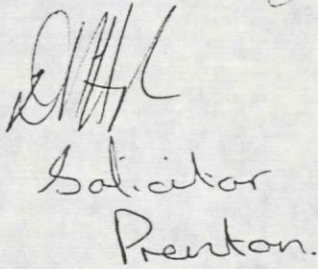 Solicitor
Prenton.